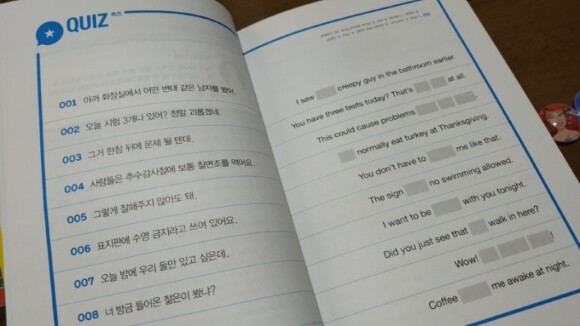 QUIZ 퀴즈
001 아까 화장실에서 어떤 변태 같은 남자를 봤어.
002 오늘 시험 3개나 있어? 정말 괴롭겠네.
003 그거 한참 뒤에 문제 될 텐데.
004 사람들은 추수감사절에 보통 칠면조를 먹어요.
005 그렇게 잘해주지 않아도 돼.
006 표지판에 수영 금지라고 쓰여 있어요.
007 오늘 밤에 우리 둘만 있고 싶은데.
008 너 방금 들어온 젊은이 봤냐?
I saw creepy guy in the bathroom earlier.
You have three tests today? That's at all.
This could cause problems .
normally eat turkey at Thanksgiving.
You don't have to me like that.
The sign no swimming allowed.
I want to be with you tonight.
Did you just see that walk in here?
Wow! !
Coffee me awake at night.